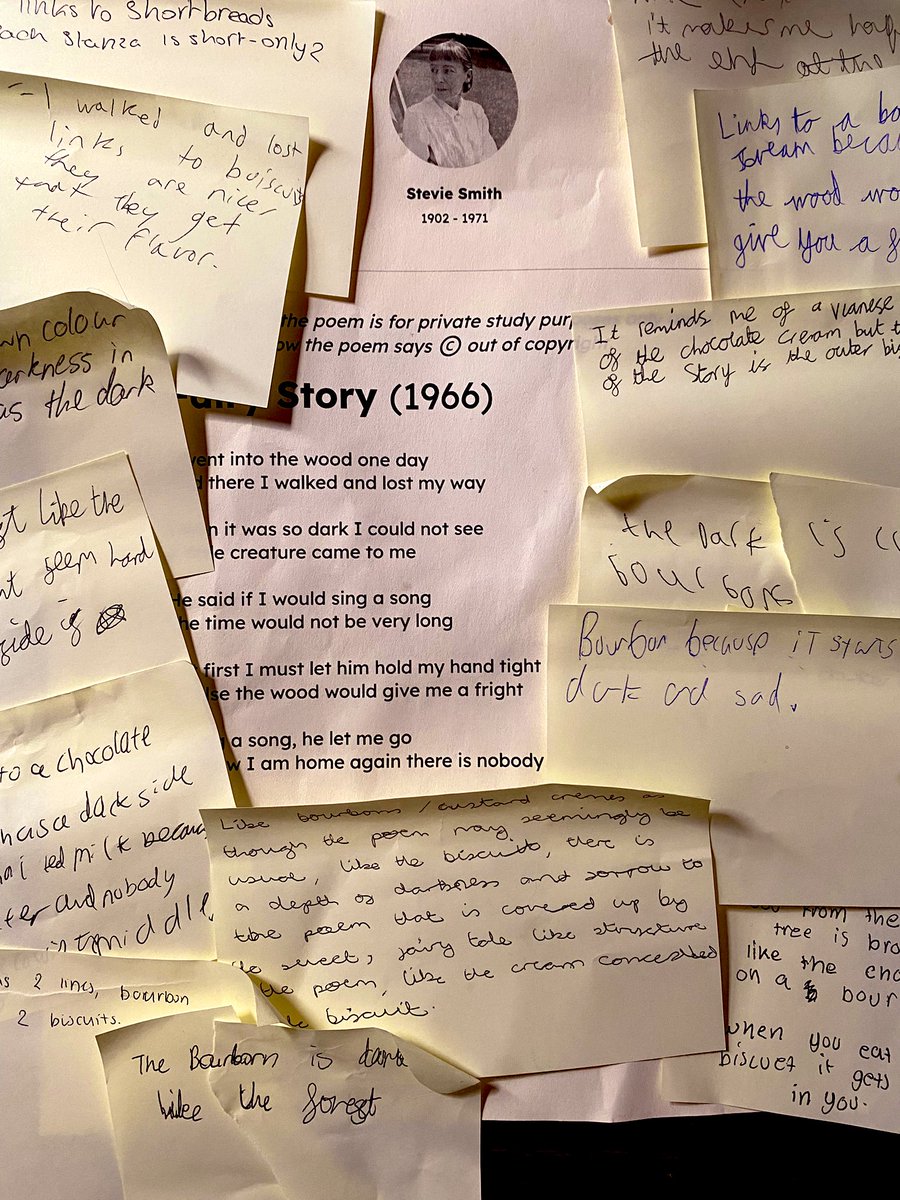 links to shortbreads
each stanza is short-only 2
it makes me
the end at the
I walked and lost
links to buiscuit
they are nicer
that they get
their flavor.
Stevie Smith
1902 - 1971
Links to a
because
the wood
give you a
the poem is for private study
the poem says © out of
Story (1966)
went into the wood one day
there I walked and lost my way
it was so dark I could not see
creature came to me
He said if I would sing a song
time would not be very long
first I must let him hold my hand tight
the wood would give me a fright
a song, he let me go
I am home again there is nobody
It reminds me of a vianese
of the chocolate cream but
of the Story is the outer
colour
darkness in
as the dark
like the
seem hard
side if
the Dark is
bourbons
Bourbon because iT starts
dark and sad.
to a chocolate
has a dark side
milk because
and nobody
middle
Like bourbons / custard cremes as
though the poem may seemingly be
usual, like the biscuits, there is
a depth of darkness and sorrow to
the poem that is covered up by
sweet, fairy tale like structure
the poem, like the cream concealed
biscuit.
2 lines, bourbon
2 biscuits.
The Bourborn is dark
like the forest
from the
tree is
like the
on a
when you eat
biscuet it gets
in you.